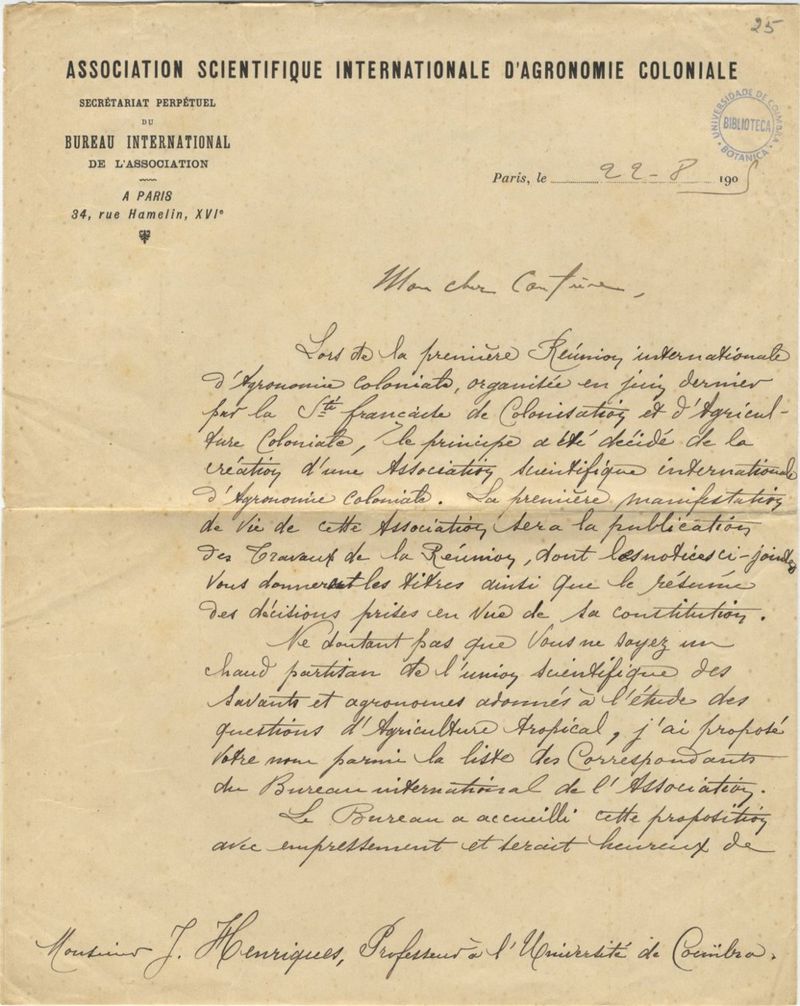 25
ASSOCIATION SCIENTIFIQUE INTERNATIONALE D'AGRONOMIE COLONIALE
SECRÉTARIAT PERPÉTUEL
DU
BUREAU INTERNATIONAL
DE L'ASSOCIATION
A PARIS
34, rue Hamelin, XVIe
UNIVERSIDADE DE COIMBRA
BIBLIOTECA
BOTANICA
Paris, le 22-8 1905
Mon cher Confrère,
Lors de la première Réunion internationale
d'Agronomie coloniale, organisée en juin dernier
par la Sté française de Colonisation et d'Agricul-
ture Coloniale, le principe a été décidé de la
création d'une Association scientifique internationale
d'Agronomie coloniale. La première manifestation
de vie de cette Association sera la publication
des Travaux de la Réunion, dont les notices ci-jointes
vous donneront les titres ainsi que le résumé
des décisions prises en vue de sa constitution.
Ne doutant pas que vous ne soyez un
chaud partisan de l'union scientifique des
savants et agronomes adonnés à l'étude des
questions d'Agriculture tropical, j'ai proposé
votre nom parmi la liste des Correspondants
du Bureau international de l'Association.
Le Bureau a accueilli cette proposition
avec empressement et serait heureux de
Monsieur J. Henriques, Professeur à l'Université de Coïmbra.